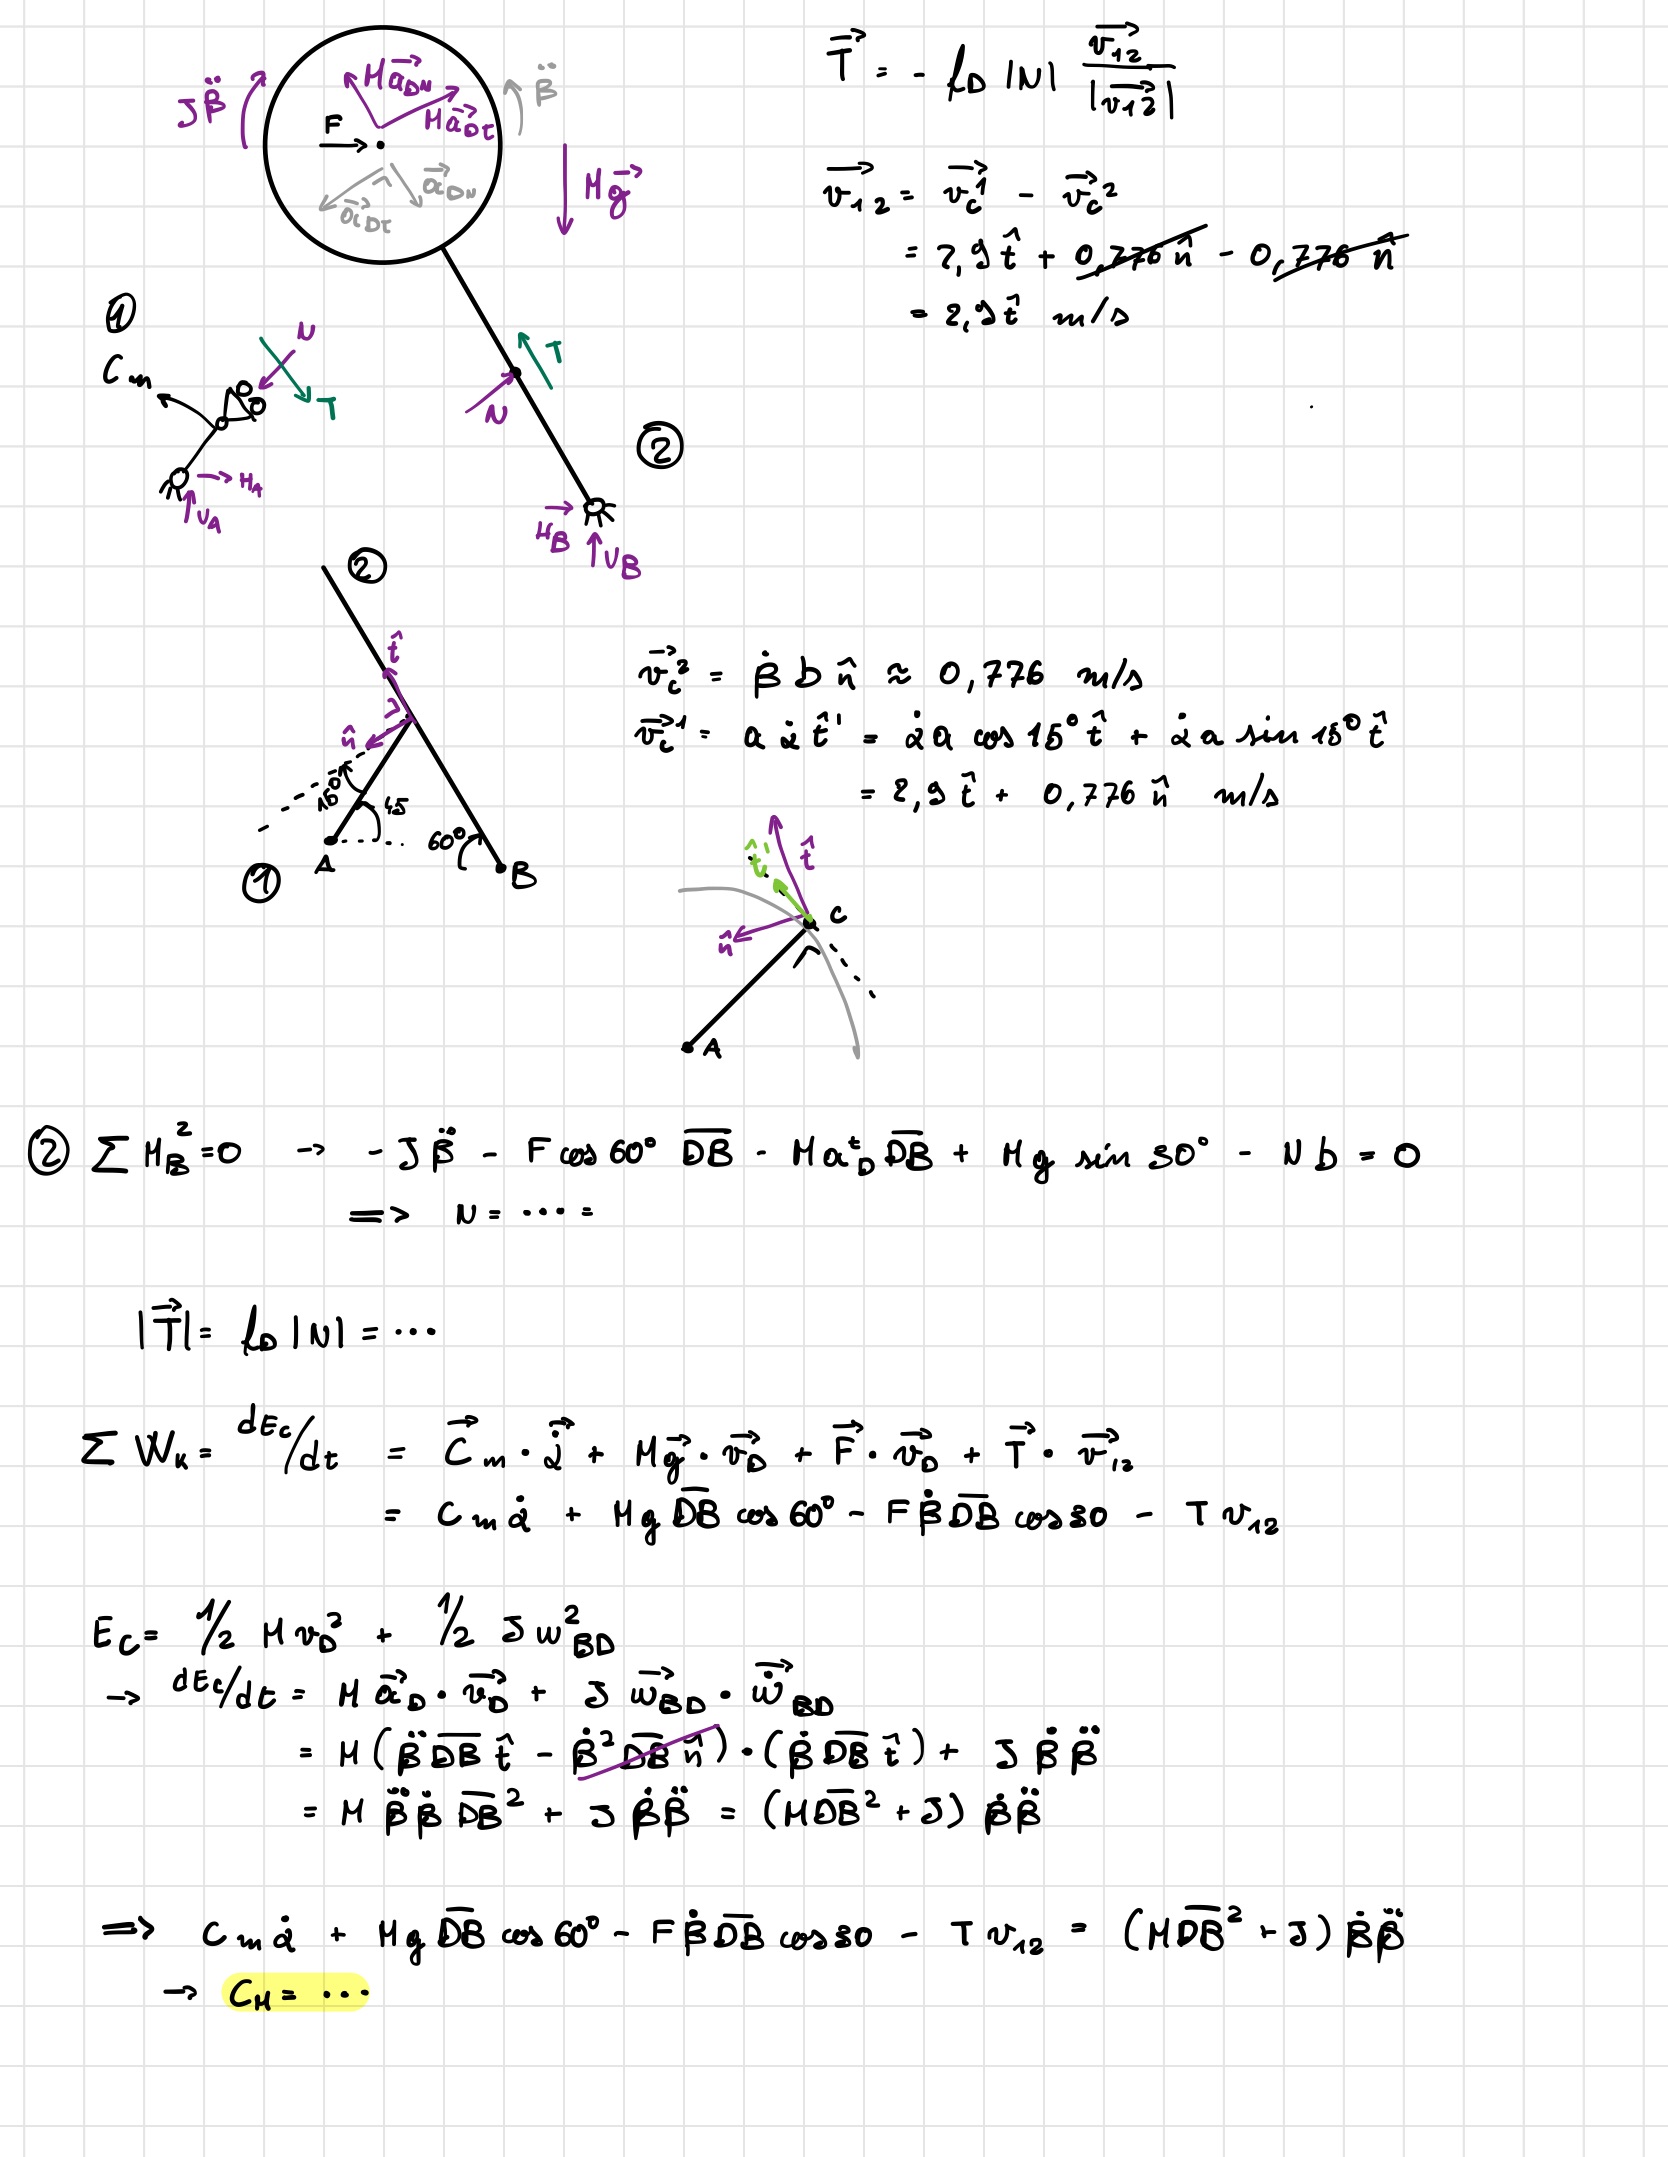 Jβ̈
M a⃗_DN
M a⃗_Dt
β̈
F
a⃗_Dt
a⃗_DN
M g⃗
T⃗ = - f_D |N| v⃗_12 / |v⃗_12|
v⃗_12 = v⃗_c^1 - v⃗_c^2
= 2,9 t̂ + 0,776 n̂ - 0,776 n̂
= 2,9 t̂ m/s
①
C_m
N
T
H_A
V_A
T
N
②
H_B
V_B
②
t̂
n̂
15°
45
60°
A
B
①
v⃗_c^2 = β̇ b n̂ ≈ 0,776 m/s
v⃗_c^1 = a α̇ t̂' = α̇ a cos 15° t̂ + α̇ a sin 15° t̂
= 2,9 t̂ + 0,776 n̂ m/s
t̂'
t̂
n̂
C
A
② ∑ M_B^2 = 0 → - Jβ̈ - F cos 60° D̅B̅ - M a_D^t D̅B̅ + M g sin 30° - N b = 0
=> N = ... =
|T⃗| = f_D |N| = ...
∑ W_k = dE_c/dt = C⃗_m · α̇⃗ + M g⃗ · v⃗_D + F⃗ · v⃗_D + T⃗ · v⃗_12
= C_m α̇ + M g D̅B̅ cos 60° - F β̇ D̅B̅ cos 30 - T v_12
E_C = 1/2 M v_D^2 + 1/2 J w_BD^2
→ dE_c/dt = M a⃗_D · v⃗_D + J w⃗_BD · ẇ⃗_BD
= M (β̈ D̅B̅ t̂ - β̇² D̅B̅ n̂) · (β̇ D̅B̅ t̂) + J β̇ β̈
= M β̈ β̇ D̅B̅² + J β̇ β̈ = (M D̅B̅² + J) β̇ β̈
=> C_m α̇ + M g D̅B̅ cos 60° - F β̇ D̅B̅ cos 30 - T v_12 = (M D̅B̅² + J) β̇ β̈
→ C_M = ...